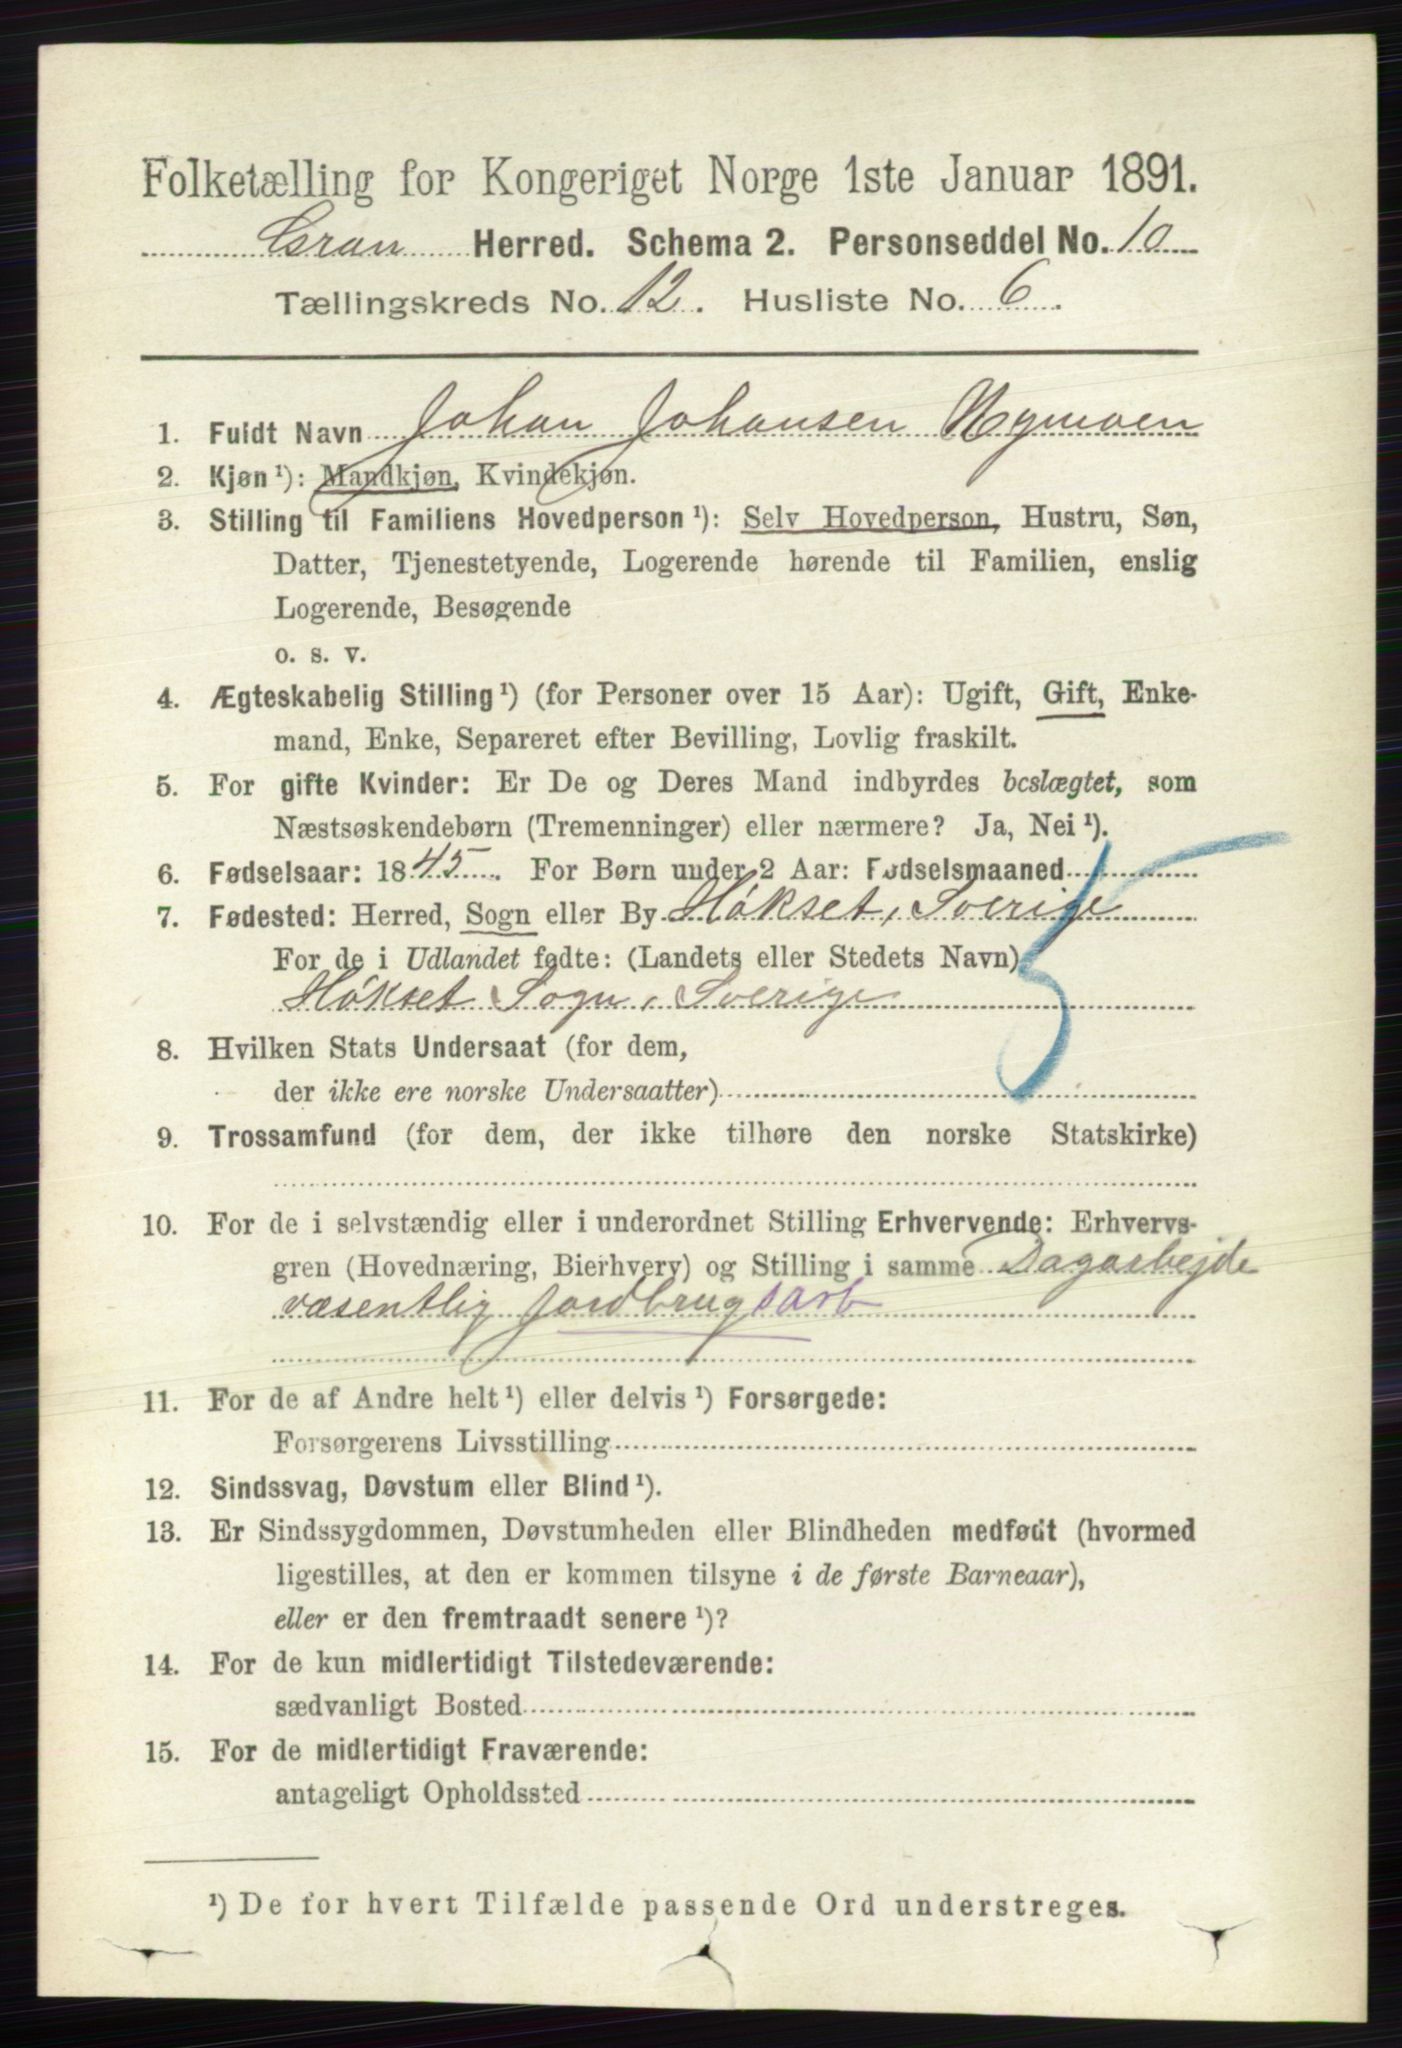 Folketælling for Kongeriget Norge 1ste Januar 1891.
Gran Herred. Schema 2. Personseddel No. 10
Tællingskreds No. 12. Husliste No. 6.
1. Fuldt Navn Johan Johansen Nymoen
2. Kjøn¹): Mandkjøn, Kvindekjøn.
3. Stilling til Familiens Hovedperson¹): Selv Hovedperson, Hustru, Søn,
Datter, Tjenestetyende, Logerende hørende til Familien, enslig
Logerende, Besøgende
o. s. v.
4. Ægteskabelig Stilling¹) (for Personer over 15 Aar): Ugift, Gift, Enke-
mand, Enke, Separeret efter Bevilling, Lovlig fraskilt.
5. For gifte Kvinder: Er De og Deres Mand indbyrdes beslægtet, som
Næstsøskendebørn (Tremenninger) eller nærmere? Ja, Nei¹).
6. Fødselsaar: 1845. For Børn under 2 Aar: Fødselsmaaned
7. Fødested: Herred, Sogn eller By Hökset, Sverige
For de i Udlandet fødte: (Landets eller Stedets Navn)
Hökset Sogn, Sverige
5
8. Hvilken Stats Undersaat (for dem,
der ikke ere norske Undersaatter)
9. Trossamfund (for dem, der ikke tilhøre den norske Statskirke)
10. For de i selvstændig eller i underordnet Stilling Erhvervende: Erhvervs-
gren (Hovednæring, Bierhverv) og Stilling i samme Dagarbejde
væsentlig Jordbrugsarb
11. For de af Andre helt¹) eller delvis¹) Forsørgede:
Forsørgerens Livsstilling
12. Sindssvag, Døvstum eller Blind¹).
13. Er Sindssygdommen, Døvstumheden eller Blindheden medfødt (hvormed
ligestilles, at den er kommen tilsyne i de første Barneaar),
eller er den fremtraadt senere¹)?
14. For de kun midlertidigt Tilstedeværende:
sædvanligt Bosted
15. For de midlertidigt Fraværende:
antageligt Opholdssted
¹) De for hvert Tilfælde passende Ord understreges.